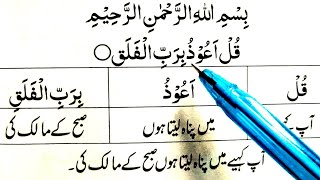 بِسْمِ اللهِ الرَّحْمٰنِ الرَّحِيْمِ
قُلْ اَعُوْذُ بِرَبِّ الْفَلَقِ
قُلْ اَعُوْذُ بِرَبِّ الْفَلَقِ
آپ میں پناہ لیتا ہوں صبح کے مالک کی
آپ کہیے میں پناہ لیتا ہوں صبح کے مالک کی۔